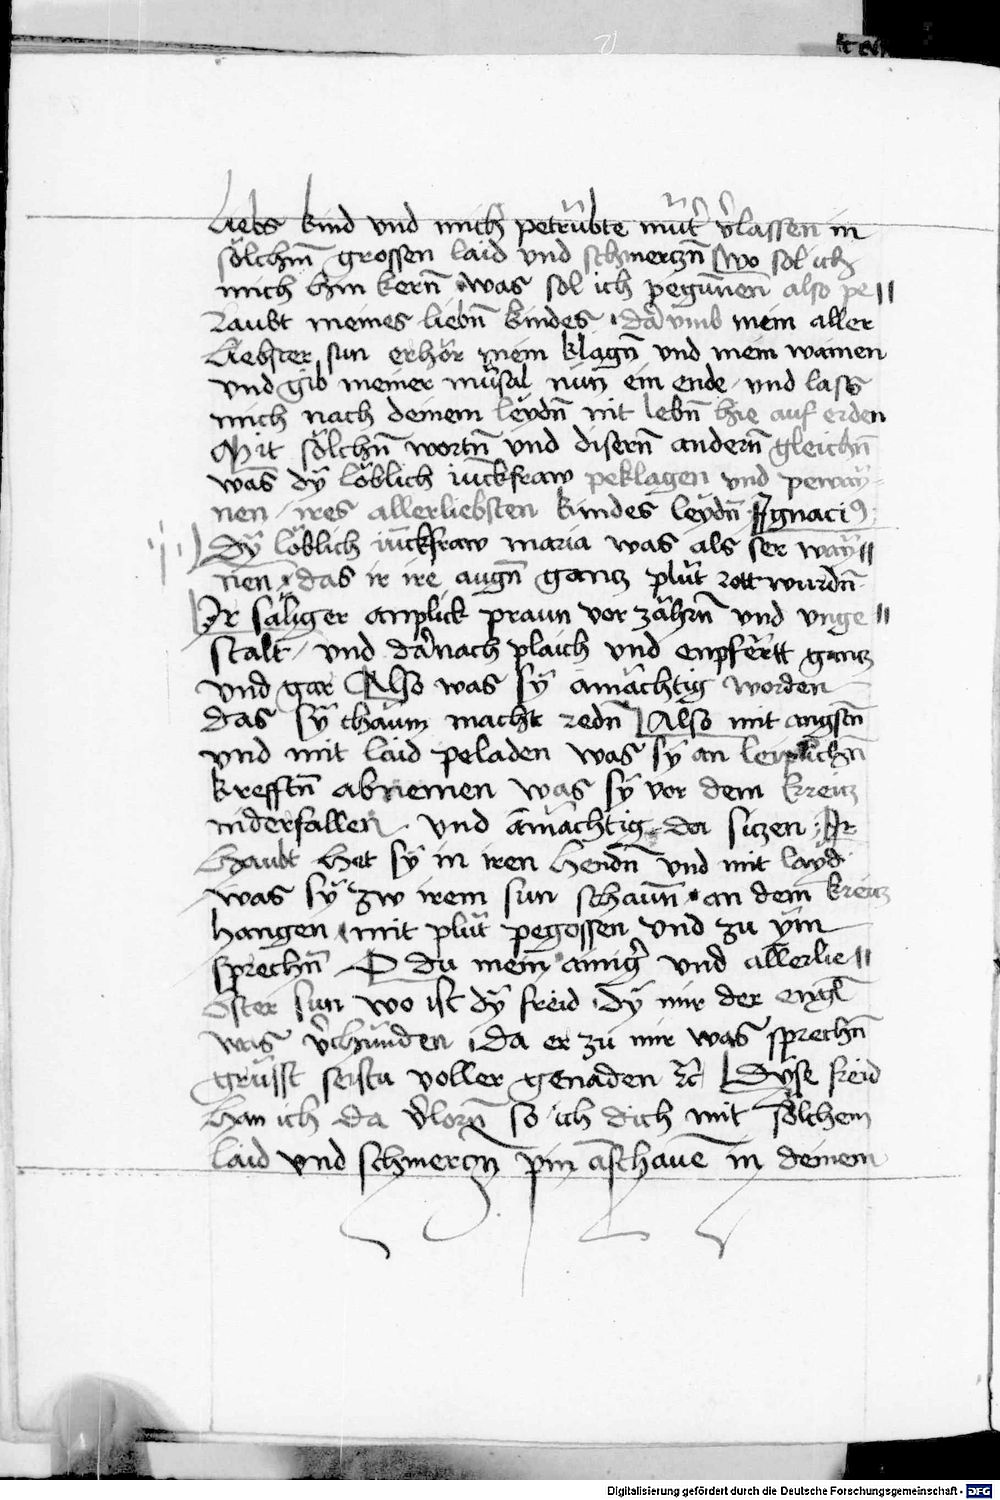 liebs kind vnd mich petrübte můt̄ v̄lassen in
sölchm̄ grossen laid vnd schmerczn̄ wo sol ich
mich hin kern̄ was sol ich pegūnen also pe〃
raubt meines liebn̄ kindes · dar vmb mein aller
liebster sun erhör mein klagn̄ vnd mein wainen
vnd gib meiner müsal nün ein ende · vnd lass
mich nach deinem leydn̄ nit lebn̄ hie auf erden
Mit sölchn̄ wortn̄ vnd disern̄ andern̄ gleichn̄
was dÿ löblich iūckfraw peklagen vnd peway〃
nen ires allerliebsten kindes leÿdn̄ Ignaciꝰ
Dÿ löblich iūckfraw maria was als ser waÿ〃
nen · das ir ire augn̄ gancz plůt rott wurdn̄ ·
Ir säliger anplick praun vor zähern̄ vnd vnge〃
stalt / vnd darnach plaich vnd enpfertt gancz
vnd gar Also was sÿ amächtig worden
das sÿ chaum macht redn̄ Also mit angstn̄
vnd mit laid peladen was sÿ an leiplichn̄
krefftn̄ abnemen was sÿ vor dem kreicz
niderfallen · vnd amächtig da siczen · Ir
haubt het sÿ in iren hendn̄ vnd mit layd
was sÿ zw irem sun schaun̄ · an dem kreicz
hangen · mit plůt pegossen vnd zu ÿm
sprechn̄ O du mein ainiḡ vnd allerlie〃
bster sun wo ist dÿ freid · dÿ mir der engl
was v̄chünden · da er zu mir was sprechn̄
grüsst seistu voller genaden ꝛc̄ Dÿse freid
han ich da v̄lorn̄ so ich dich mit sölchem
laid vnd schmerczn pin āschauē in deinem
Digitalisierung gefördert durch die Deutsche Forschungsgemeinschaft - DFG